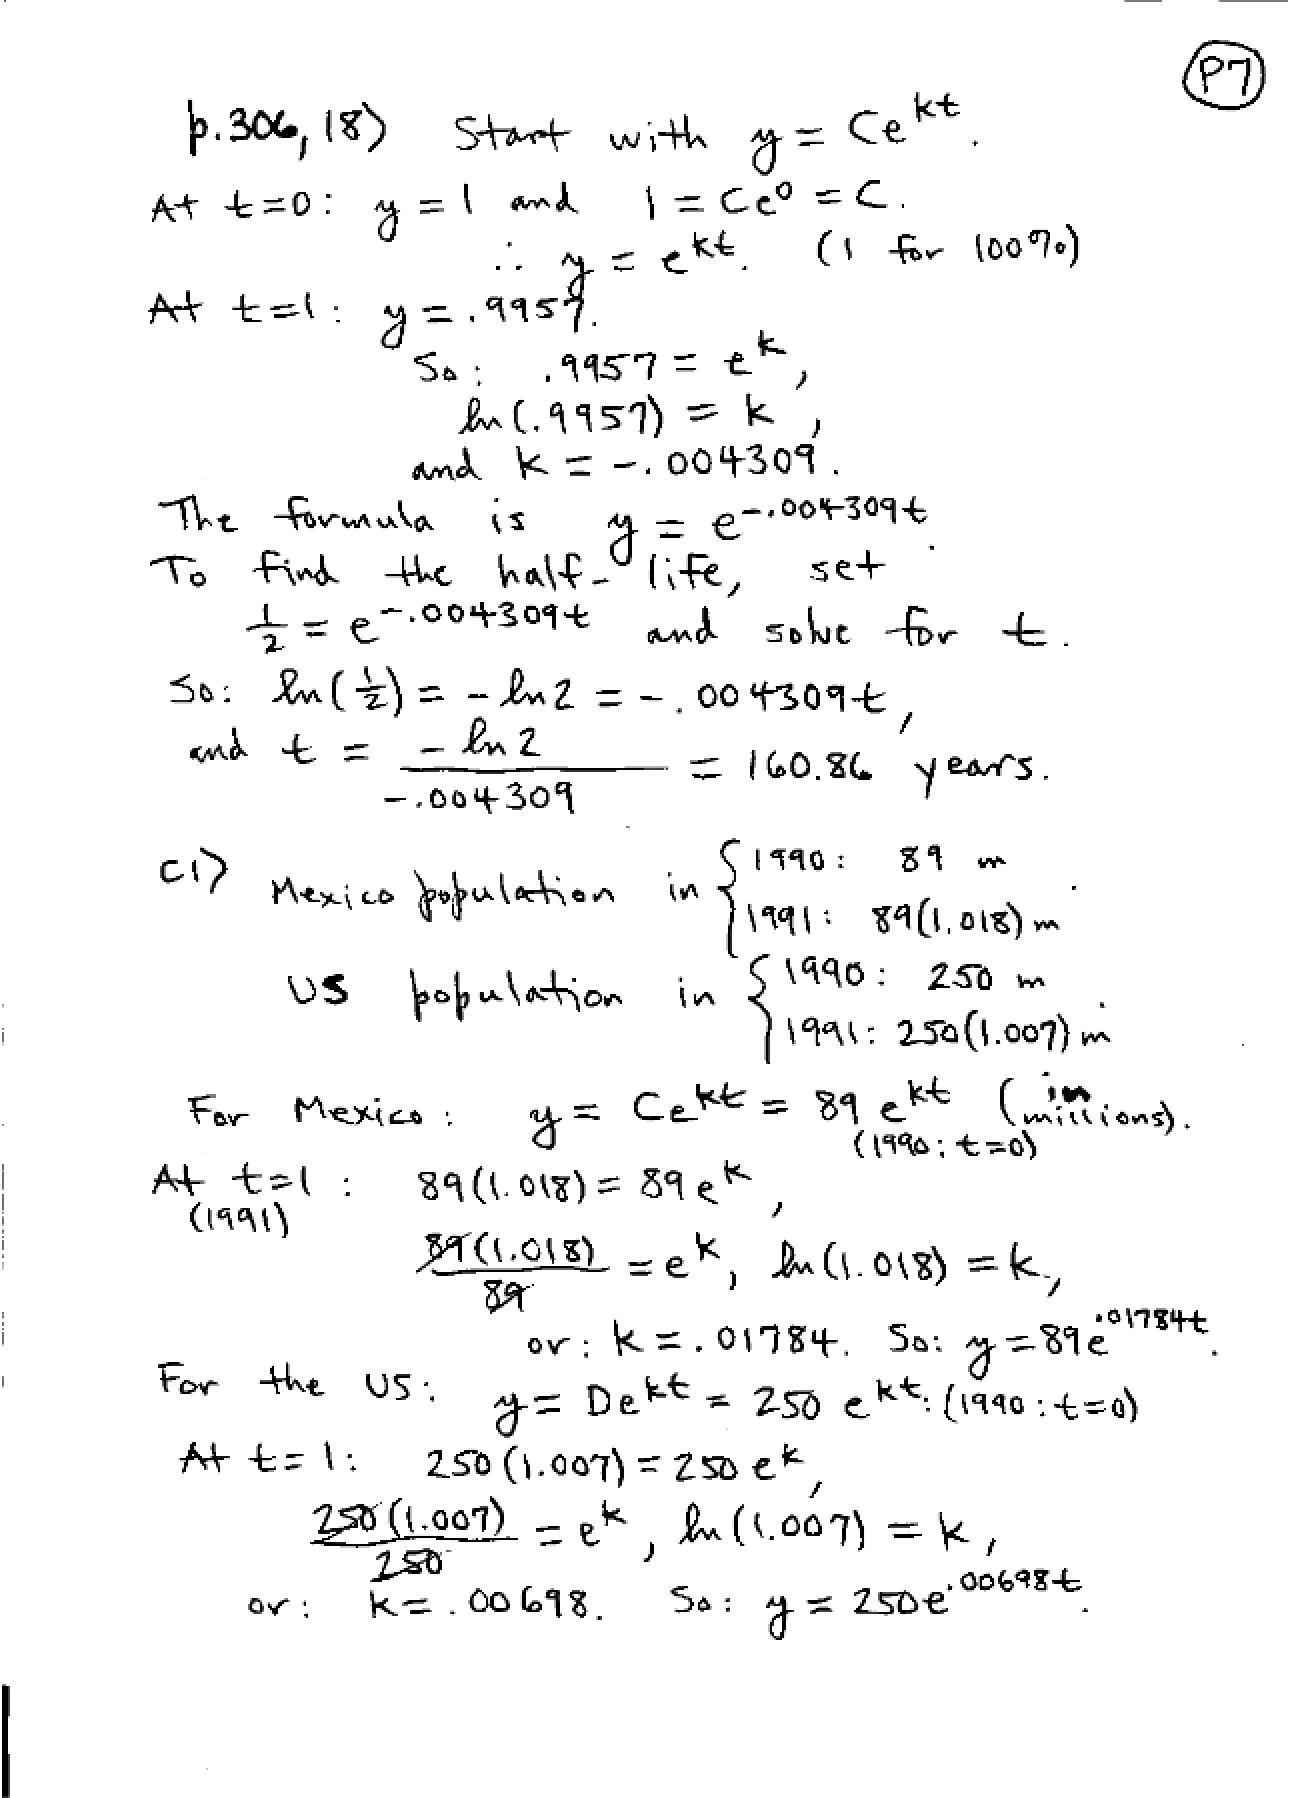 P7
p.306, 18) Start with y = Ce^kt.
At t=0: y = 1 and 1 = Ce^0 = C.
∴ y = e^kt. (1 for 100%)
At t=1: y = .9957.
So: .9957 = e^k,
ln(.9957) = k,
and k = -.004309.
The formula is y = e^-.004309t.
To find the half-life, set
1/2 = e^-.004309t and solve for t.
So: ln(1/2) = -ln2 = -.004309t,
and t = -ln2/-.004309 = 160.86 years.
C1) Mexico population in { 1990: 89 m
1991: 89(1.018) m.
US population in { 1990: 250 m
1991: 250(1.007) m.
For Mexico: y = Ce^kt = 89 e^kt (in millions).
(1990: t=0)
At t=1: 89(1.018) = 89 e^k,
(1991)
89(1.018)/89 = e^k, ln(1.018) = k,
or: k = .01784. So: y = 89e^.01784t.
For the US: y = De^kt = 250 e^kt. (1990: t=0)
At t=1: 250(1.007) = 250 e^k,
250(1.007)/250 = e^k, ln(1.007) = k,
or: k = .00698. So: y = 250e^.00698t.